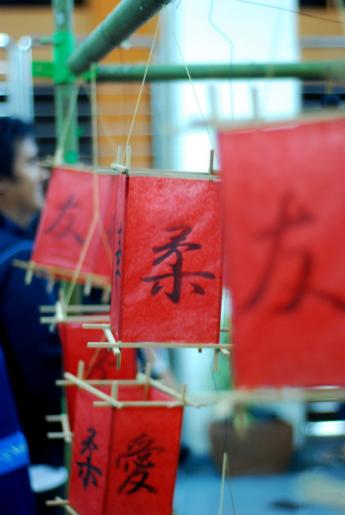 友
柔
友
柔 愛